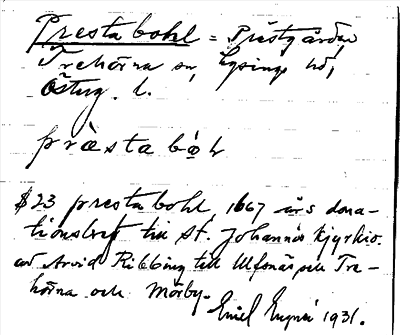 Presta bohl = Prästgården
Trehörna sn, Lysings hd,
Östg. l.
präs̀ta bọL
§ 23 presta bohl, 1667 års dona-
tionsbref till St. Johannis kyrkio.
av Arvid Ribbing till Ulfsnäs och Tre-
hörna och Mörby.
Emil 1931.